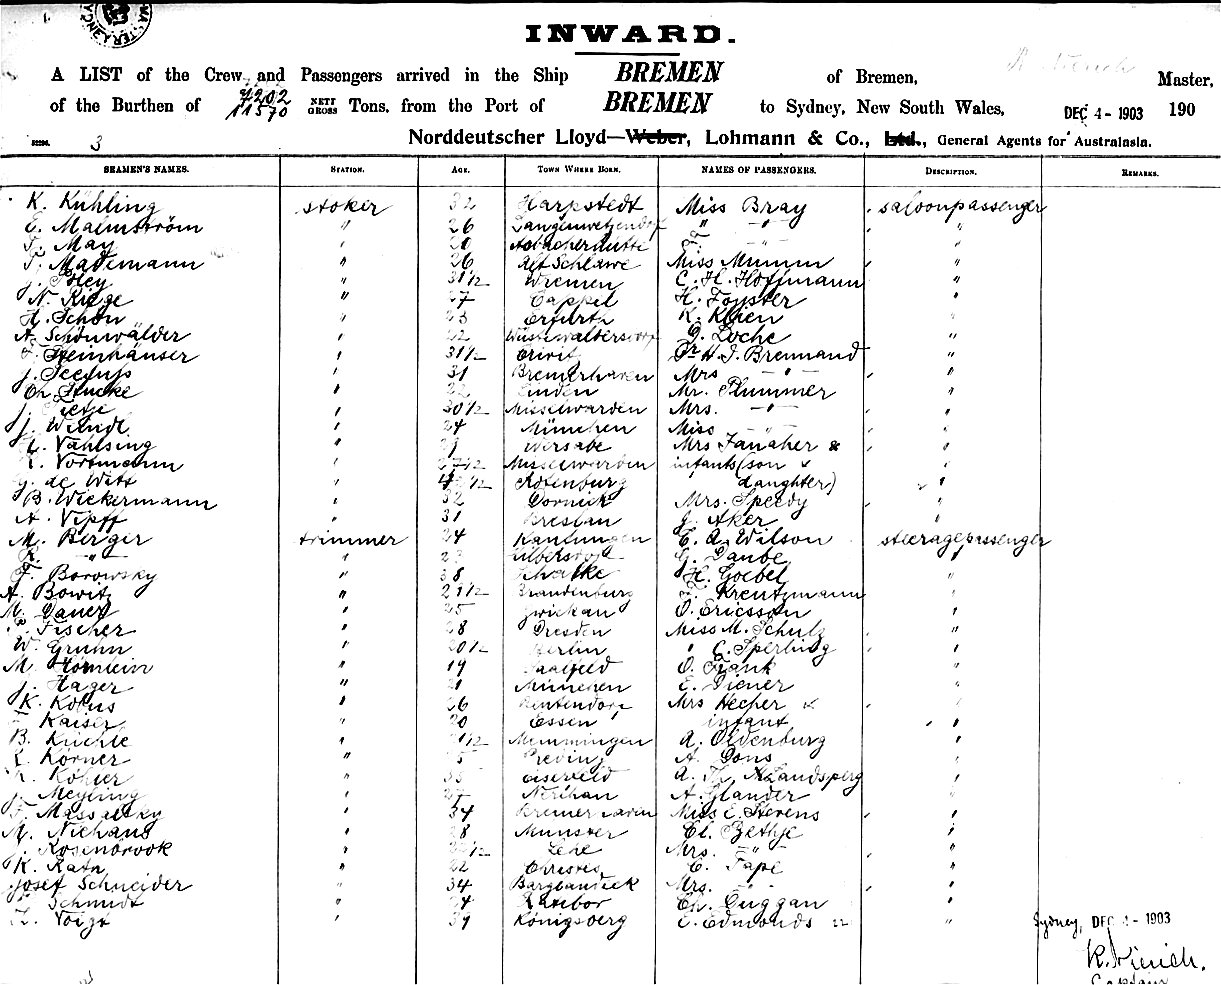 INWARD.
A LIST of the Crew and Passengers arrived in the Ship BREMEN of Bremen, Master,
of the Burthen of 4202 11570 NETT GROSS Tons, from the Port of BREMEN to Sydney, New South Wales, DEC 4 - 1903 190
3 Norddeutscher Lloyd—Weber, Lohmann & Co., Ltd., General Agents for Australasia.
SEAMEN'S NAMES. STATION. AGE. TOWN WHERE BORN. NAMES OF PASSENGERS. DESCRIPTION. REMARKS.
K. Kühling stoker 32 Harpstedt Miss Bray saloonpassenger
E. Malmström " 26 Langenwetzendorf " —"— "
F. May " 20 "
F. Mademann " 26 Alt Schlawe Miss Mumm "
J. Poley " 31 1/2 Wremen C. H. Hoffmann "
N. Ringe " 27 Cappel H. Forster "
H. Schön " 23 Erfurth K. Klien "
A. Schönwälder " 22 Wüstewaltersdorf G. Loche "
F. Steinhäuser " 31 1/2 Dr H. I. Brennand "
J. " 31 Bremerhaven Mrs —"— "
Ch. Stucke " 22 Linden Mr. Plummer "
J. Tietje " 30 1/2 Misselwarden Mrs. —"— "
J. Weindl " 24 München Miss —"— "
L. Vahlsing " Wersabe Mrs Fanaher & "
Vortmann " 27 1/2 Misselwarden infants (son & "
G. de Witt " Rotenburg daughter) "
B. Wiekermann " 32 Dornick Mrs. Speedy "
A. Vipff " 31 Breslau J. Aker "
M. Berger trimmer 24 Kaufungen E. A. Wilson steeragepassenger
R. —"— " 23 Ullersdorf G. Daube "
F. Borowsky " 38 Schalke H. Goebel "
A. Bowitz " 21 1/2 Brandenburg Kreutzmann "
M. Dauer " 25 Zwickau O. Ericsson "
Fischer " 28 Dresden Miss M. Schulz "
W. Grunn " 20 1/2 Berlin " C. Sperling "
M. Hörnlein " 19 Saalfeld O. Frank "
J. Hager " 21 München E. Diener "
K. Kobus " 26 Mrs Hecher & "
Kaiser " 20 Essen infant "
B. Küchle " Memmingen A. Oldenburg "
Körner " A. Dons "
Köhler " Eiserfeld A. Th. N. Landsperg "
J. Meyling " 27 A. Glander "
F. Massalsky " 34 Bremerhaven Miss E. Stevens "
M. Niehaus " 28 Munster Cl. Bethje "
J. Rosenbrook " Lehe Mrs. —"— "
K. Rath " 22 Christes C. Tape "
Josef Schneider " 34 Mrs. —"— "
Schmidt " 24 Ratibor Ch. Duggan "
Voigt " 39 Königsberg E. Edmonds "
Sydney, DEC 4 - 1903
Captain